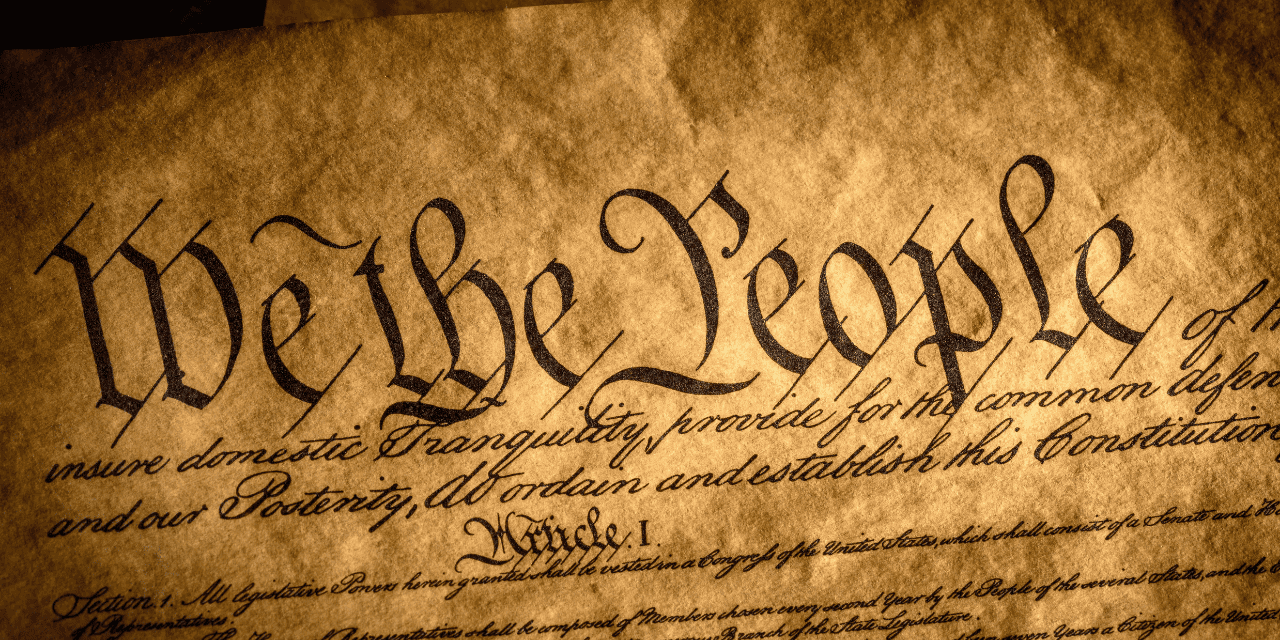 We the People of
insure domestic Tranquility, provide for the common defen
and our Posterity, do ordain and establish this Constitution
Article. I.
Section. 1. All legislative Powers herein granted shall be vested in a Congreſs of the United States, which shall consist of a Senate and
of Representatives.
Representatives shall be composed of Members chosen every second Year by the People of the several States, and the
Branch of the State Legislature.
seven Years a Citizen of the United